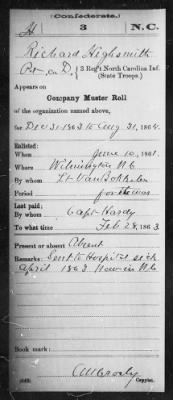 (Confederate.)
H 3 N.C.
Richard Highsmith
Pvt., Co. D., 3 Reg't North Carolina Inf.
(State Troops.)
Appears on
Company Muster Roll
of the organization named above,
for Dec 31 1863 to Aug 31, 1864.
Enlisted:
When June 10, 1861.
Where Wilmington N.C.
By whom Lt. Van Bokkelen
Period for the war
Last paid:
By whom Capt. Hardy
To what time Feb 28, 1863
Present or absent Absent
Remarks: Sent to Hospital sick
April 1863 Now in N.C.
Book mark:
Copyist.